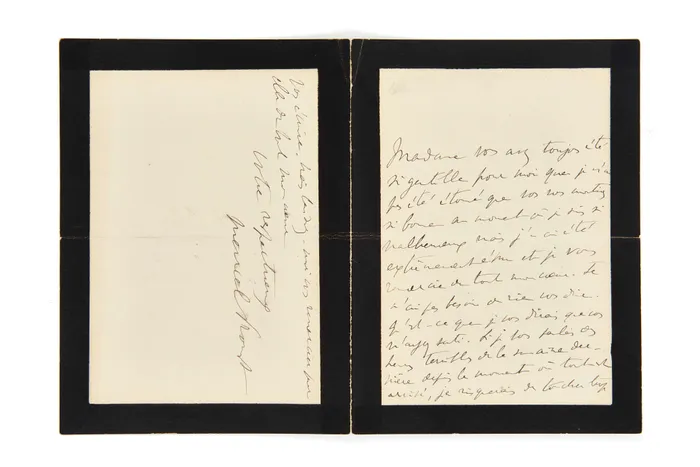 Madame vous avez toujours été
si gentille pour moi que je n'ai
pas été étonné que vous vous montriez
si bonne au moment où je suis si
malheureux mais j'en ai été
extrêmement ému et je vous
remercie de tout mon coeur. Je
n'ai pas besoin de rien vous dire.
Qu'est-ce que je vous dirais que vous
n'ayez senti. Si je vous parlais des
heures terribles de la semaine der-
nière depuis le moment où tout est
arrivé, je risquerais de toucher trop
mais laissez-moi vous remercier
de tout mon coeur
Votre respectueux
Marcel Proust